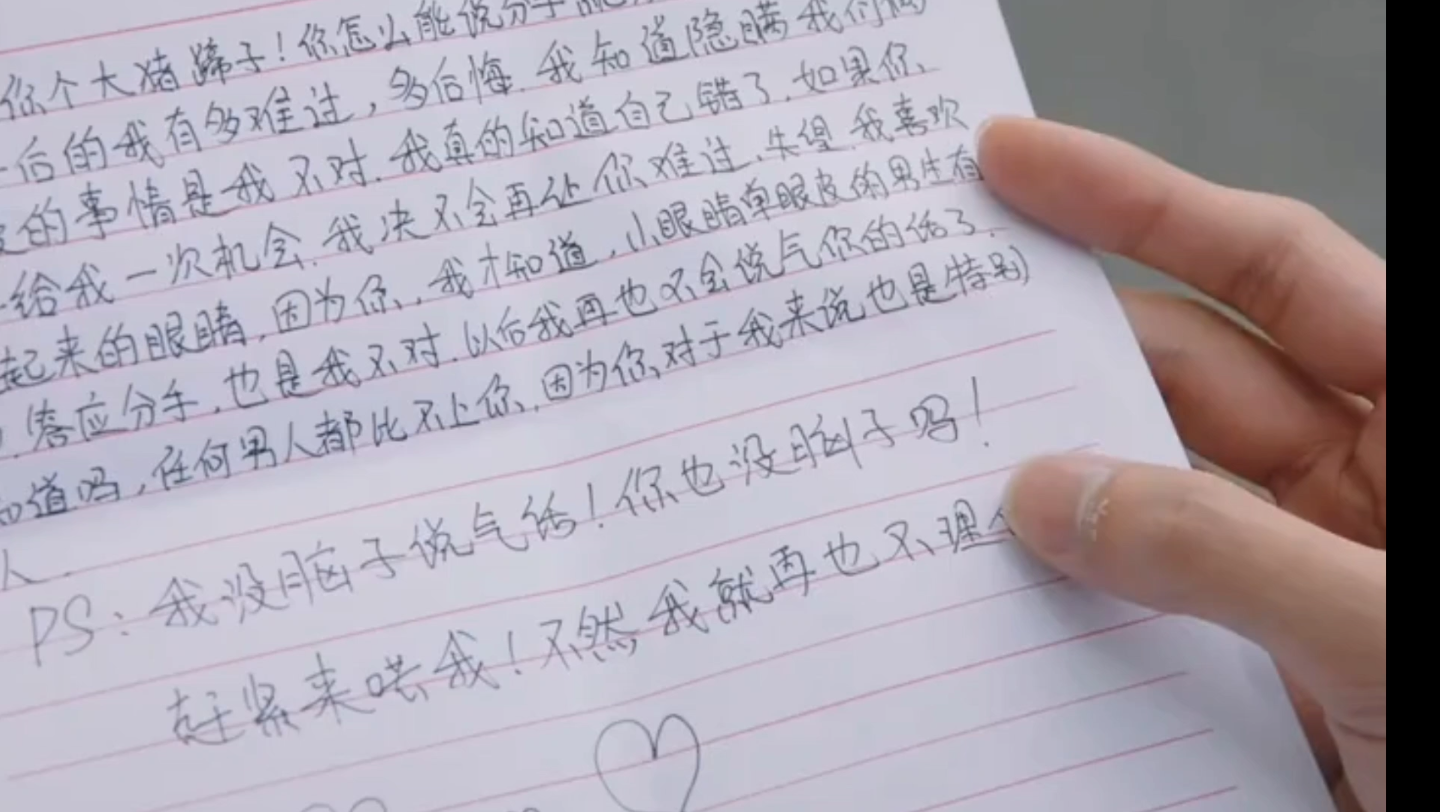 你个大猪蹄子！你怎么能说分手
后的我有多难过，多后悔.我知道隐瞒我们俩
的事情是我不对.我真的知道自己错了.如果你、
给我一次机会.我决不会再让你难过、失望.我喜欢
起来的眼睛.因为你，我才知道，小眼睛单眼皮的男生有
答应分手，也是我不对.以后我再也不会说气你的话了.
知道吗，任何男人都比不上你.因为你对于我来说也是特别
人.
PS：我没脑子说气话！你也没脑子吗！
赶紧来哄我！不然我就再也不理